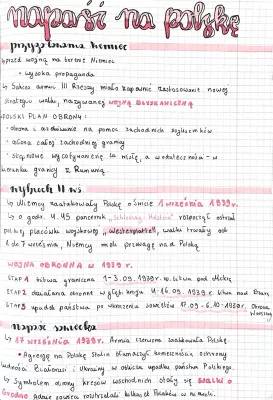 napaść na polskę
przygotowania Niemiec
przed wojną na terenie Niemiec
wysoka propaganda
Sukces armii III Rzeszy miało zapewnić zastosowanie nowej
strategii walki, nazywanej WOJNĄ BŁYSKAWICZNĄ
POLSKI PLAN OBRONY:
obrona i oczekiwanie na pomoc zachodnich sojuszników
obrona całej zachodniej granicy
stopniowe wycofywanie za Wisłę, a w ostateczności - w
kierunku granicy z Rumunią.
Wybuch II WŚ
Niemcy zaatakowały Polskę o świcie 1 września 1939r.
o godz. 4.45 pancernik "Schleswig-Holstein" rozpoczął ostrzał
polskiej placówki wojskowej "Westerplatte", walki trwały od
1 do 7 września, Niemcy mieli przewagę nad Polską
WOJNA OBRONNA W 1939 r.
ETAP 1 bitwa graniczna 1-3.09.1939r.
ETAP 2 działania obronne w głębi kraju 4-16.09.1939r.
ETAP 3 upadek państwa po wkroczeniu sowietów 17.09-6.10.1939r.
Napaść sowiecka
17 września 1939r. Armia czerwona zaatakowała Polskę
Agresję na Polskę Stalin tłumaczył koniecznością ochrony
ludności Białorusi i Ukrainy w obliczu upadku państwa Polskiego.
Symbolem obrony kresów wschodnich stały się WALKI O
GRODNO gdzie sowieci rozstrzelali kilkuset Polaków